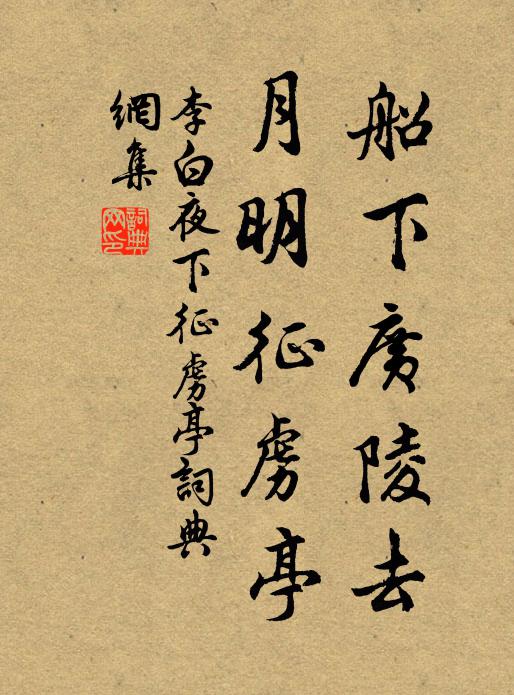 船下廣陵去
月明征虜亭
李白夜下征虜亭詞典
網集
詞典网印